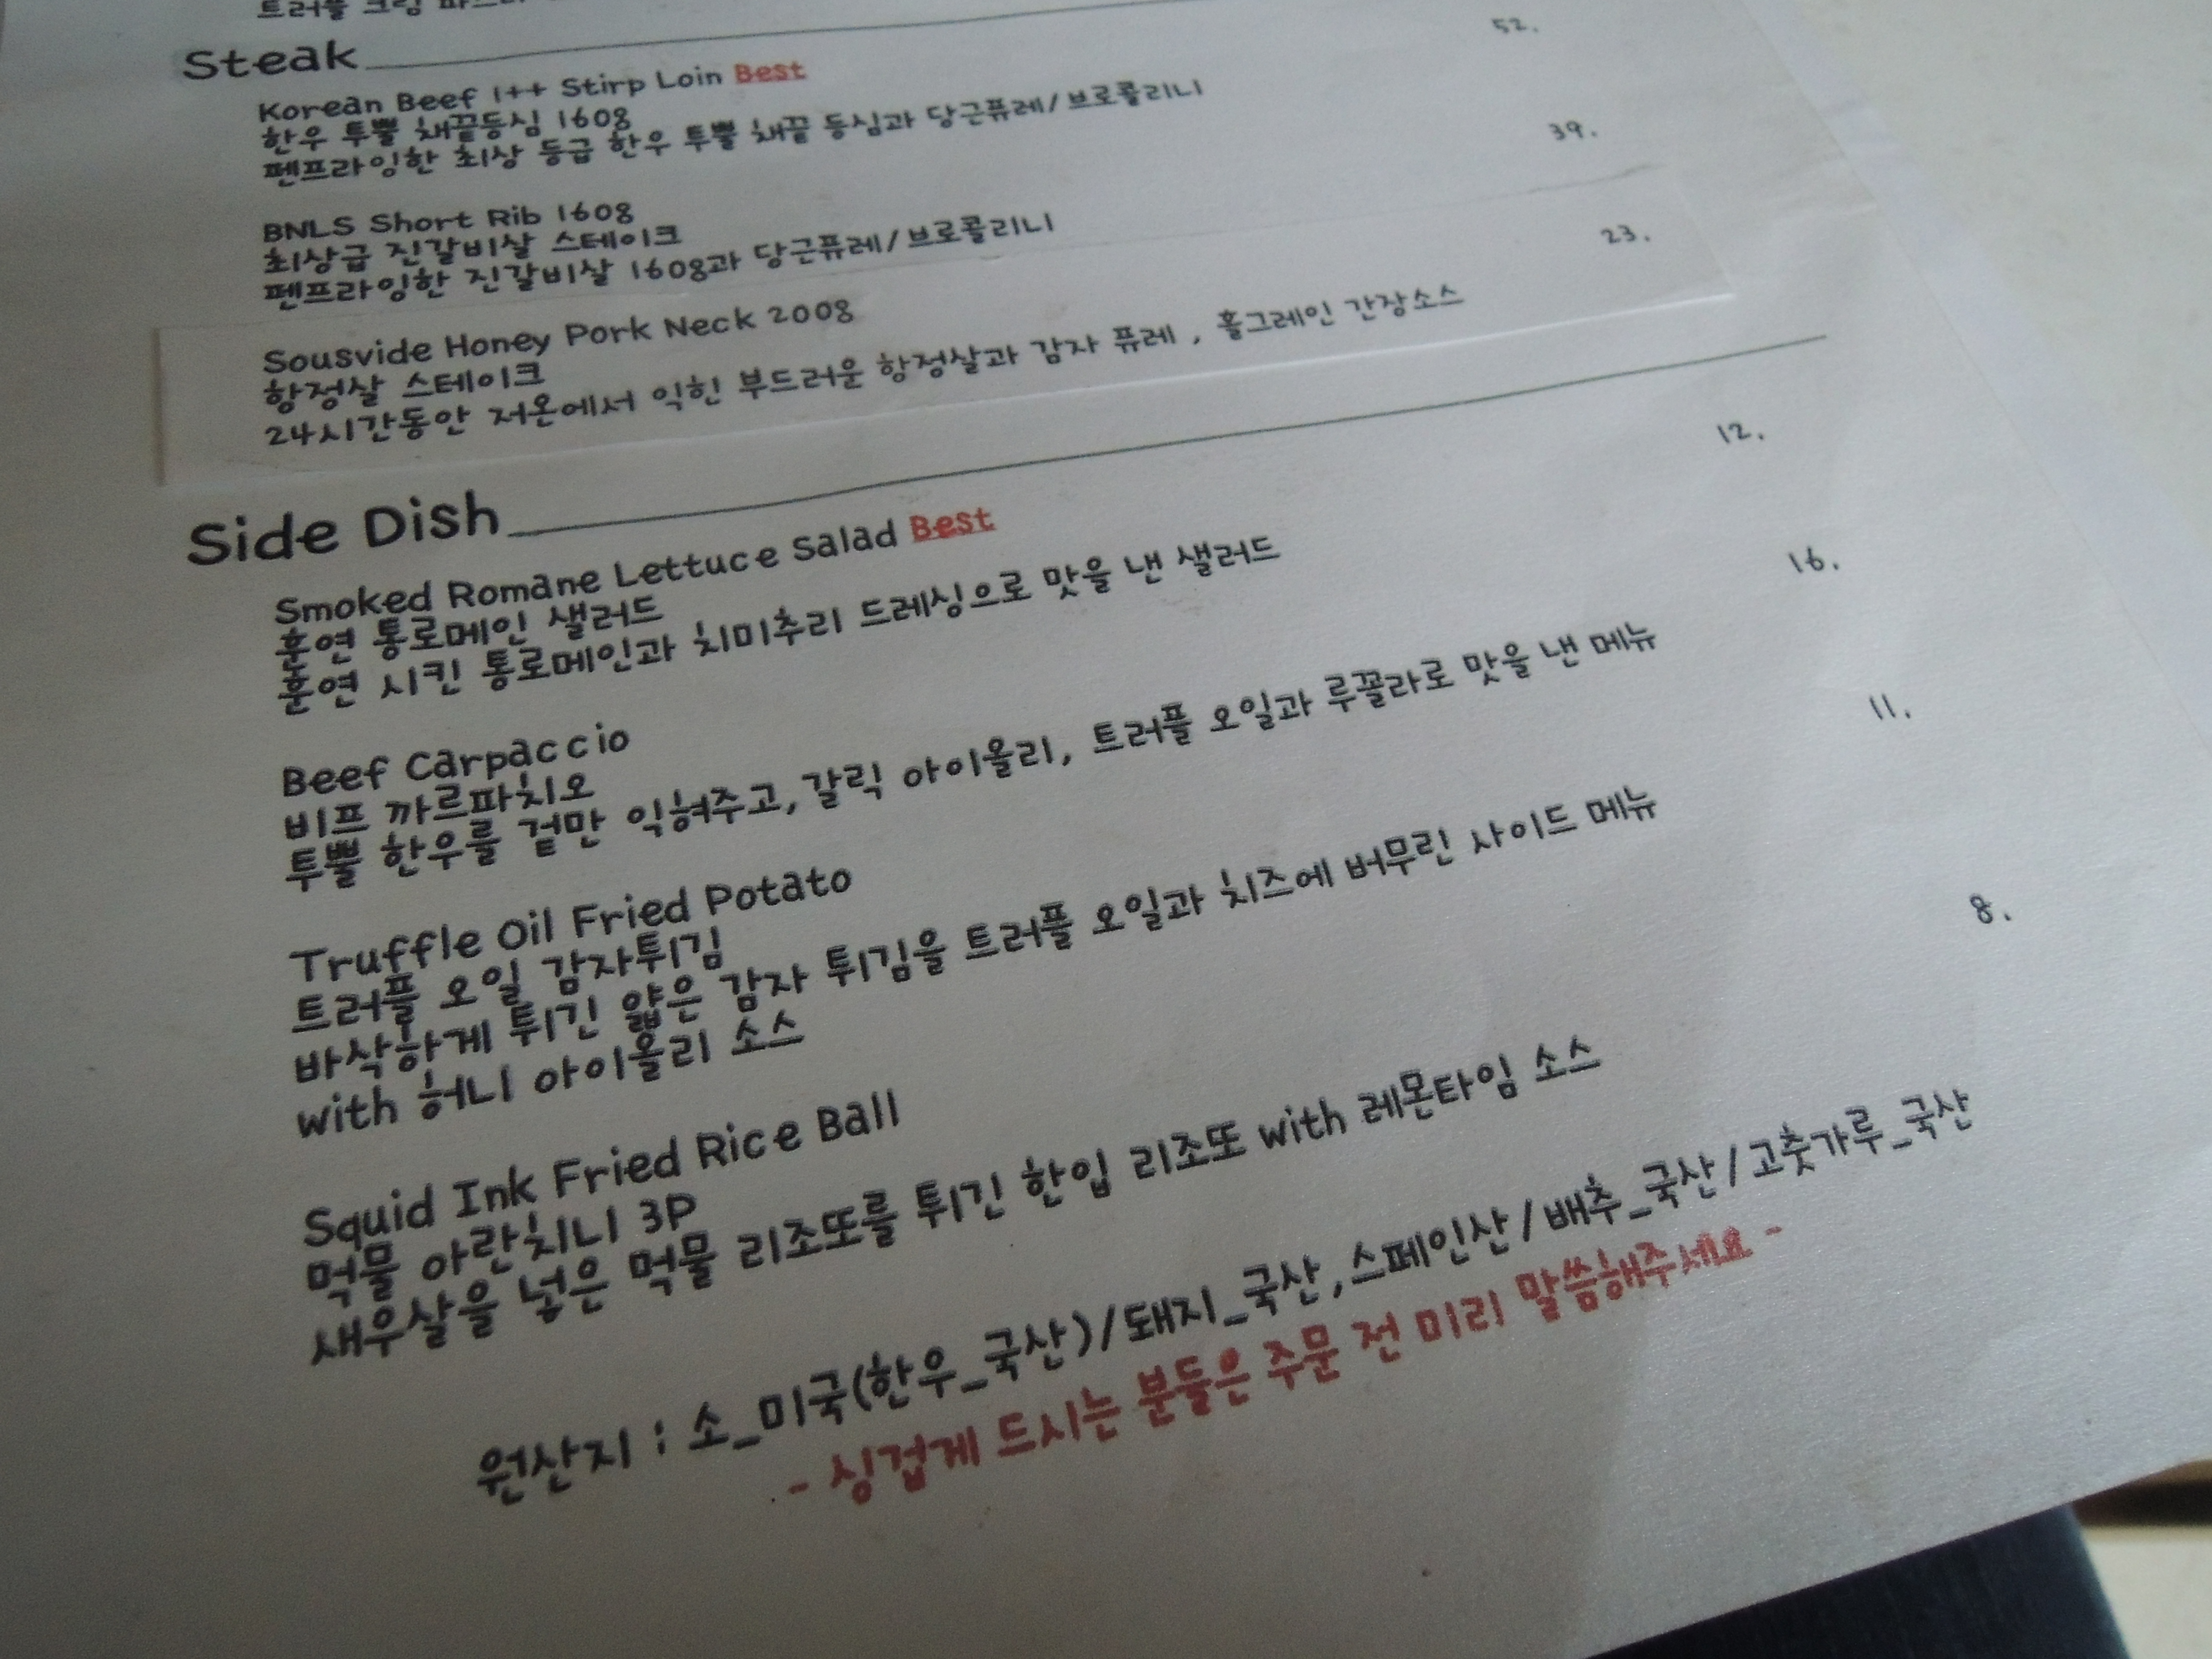 트러플 크림
Steak
Korean Beef 1++ Stirp Loin Best 52.
한우 투뿔 채끝등심 160g
펜프라잉한 최상 등급 한우 투뿔 채끝 등심과 당근퓨레/브로콜리니
BNLS Short Rib 160g 39.
최상급 진갈비살 스테이크
펜프라잉한 진갈비살 160g과 당근퓨레/브로콜리니
Sousvide Honey Pork Neck 200g 23.
항정살 스테이크
24시간동안 저온에서 익힌 부드러운 항정살과 감자 퓨레 , 홀그레인 간장소스
Side Dish
Smoked Romane Lettuce Salad Best 12.
훈연 통로메인 샐러드
훈연 시킨 통로메인과 치미추리 드레싱으로 맛을 낸 샐러드
Beef Carpaccio 16.
비프 까르파치오
투뿔 한우를 겉만 익혀주고, 갈릭 아이올리, 트러플 오일과 루꼴라로 맛을 낸 메뉴
Truffle Oil Fried Potato 11.
트러플 오일 감자튀김
바삭하게 튀긴 얇은 감자 튀김을 트러플 오일과 치즈에 버무린 사이드 메뉴
with 허니 아이올리 소스
Squid Ink Fried Rice Ball 8.
먹물 아란치니 3P
새우살을 넣은 먹물 리조또를 튀긴 한입 리조또 with 레몬타임 소스
원산지 : 소_미국(한우_국산)/돼지_국산,스페인산/배추_국산/고춧가루_국산
- 싱겁게 드시는 분들은 주문 전 미리 말씀해주세요 -